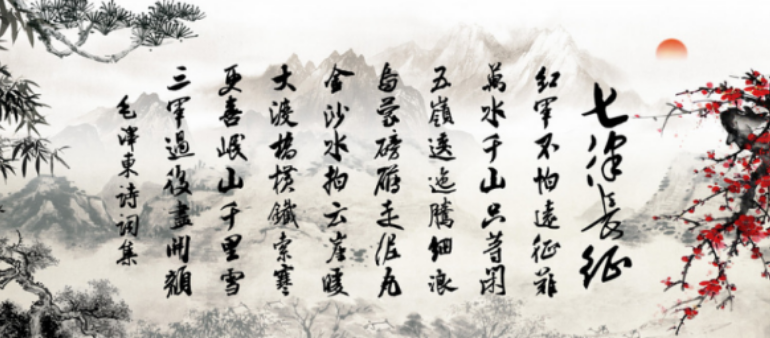 七律長征
紅軍不怕遠征難
萬水千山只等閑
五嶺逶迤騰細浪
烏蒙磅礴走泥丸
金沙水拍云崖暖
大渡橋橫鐵索寒
更喜岷山千里雪
三軍過後盡開顏
毛澤東詩詞集